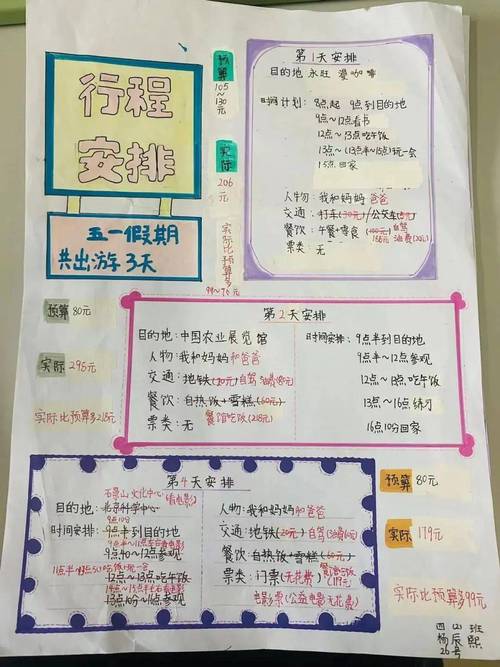 行程
安排
五一假期
共出游3天
预算
105
～
130
元
实际
206
元
实际比预算多
第1天安排
目的地 永旺 漫咖啡
时间计划: 8点起 9点到目的地
9点～12点看书
12点～13点吃午饭
13点～(13点半～15点)玩一会
15点回家
人物: 我和妈妈爸爸
交通: 打车(30元)/公交车(5元)
自驾
餐饮: 午餐+零食(100元)
186元 油费(20元)
票类: 无
预算 80元
实际 295元
实际比预算多215元
第2天安排
目的地: 中国农业展览馆
人物: 我和妈妈和爸爸
交通: 地铁(20元)自驾 油费
餐饮: 自热饭+雪糕(60元)
餐馆吃饭(215元)
票类: 无
时间安排: 9点半到目的地
9点半～12点参观
12点～13点吃午饭
13点～16点练习
16点10分回家
第4天安排
石景山文化中心(看电影)
目的地: 北京科学中心
9点10分
时间安排: 9点半到目的地
9点半～11点半看电影
9点40～12点参观
吃饭玩一会
12点～13点吃午饭
13点10分～16点参观
人物: 我和妈妈和爸爸
交通: 地铁(20元)自驾
餐饮: 自热饭+雪糕(60元)
餐馆吃饭
票类: 门票(无花费)(119元)
电影票(公益电影无花费)
预算 80元
实际 179元
实际比预算多99元
四 班
杨辰熙
26号